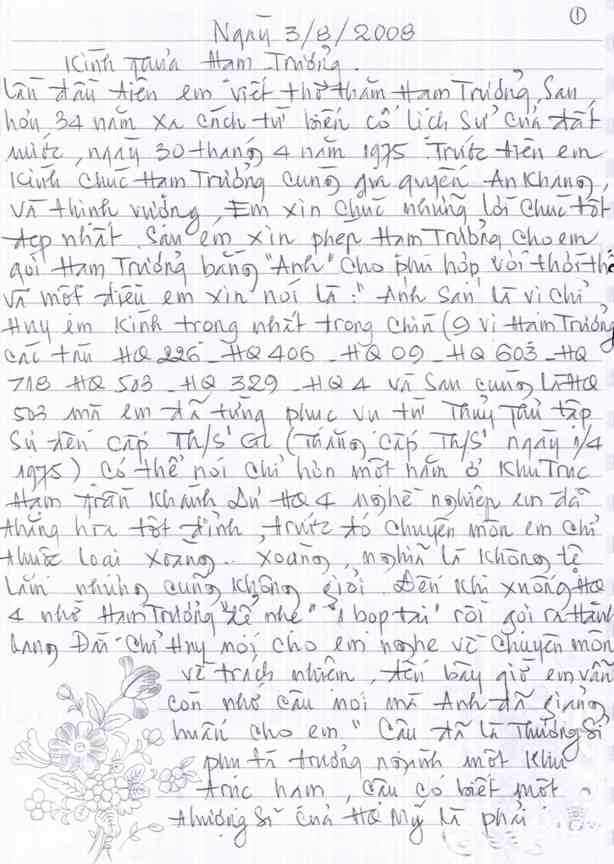 ①
Ngày 3/8/2008
Kính thưa Hạm Trưởng.
Lần đầu tiên em viết thơ thăm Hạm Trưởng, Sau
hơn 34 năm xa cách từ biến cố lịch sử của đất
nước, ngày 30 tháng 4 năm 1975. Trước tiên em
Kính chúc Hạm Trưởng cùng gia quyến An Khang
và thịnh vượng, Em xin chúc những lời chúc tốt
đẹp nhất. Sau em xin phép Hạm Trưởng cho em
gọi Hạm Trưởng bằng "Anh" cho phù hợp với thời thế
và một điều em xin nói là: "Anh San" là vị chỉ
Huy em Kính trọng nhất trong chín (9 vị Hạm Trưởng
các tàu HQ 226 - HQ 406 - HQ 09 - HQ 603 - HQ
718 HQ 503 - HQ 329 - HQ 4 và Sau cùng là HQ
503 mà em đã từng phục vụ từ Thủy Thủ tập
Sự đến cấp Th/S' GL (Thăng cấp Th/S' ngày 1/4
1975) có thể nói chỉ hơn một năm ở Khu Trục
Hạm Trần Khánh Dư HQ 4 nghề nghiệp em đã
thăng hoa tột đỉnh, trước đó chuyên môn em chỉ
thuộc loại xoàng.. xoàng, nghĩa là không tệ
lắm nhưng cũng không giỏi. Đến khi xuống HQ
4 nhờ Hạm Trưởng "Lể nhẻ" "1 bop tai" rồi gọi ra Hành
lang Đài chỉ Huy nói cho em nghe về chuyên môn
về trách nhiệm, đến bây giờ em vẫn
còn nhớ câu nói mà Anh đã giảng
huấn cho em "Cậu đã là Thượng Sỉ
phụ tá trưởng ngành một Khu
trục hạm, cậu có biết một
thượng Sĩ của HQ Mỹ là phải